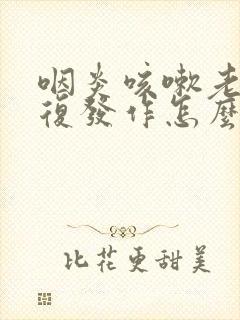 咽炎咳嗽老
復發作怎麼
比花更甜美